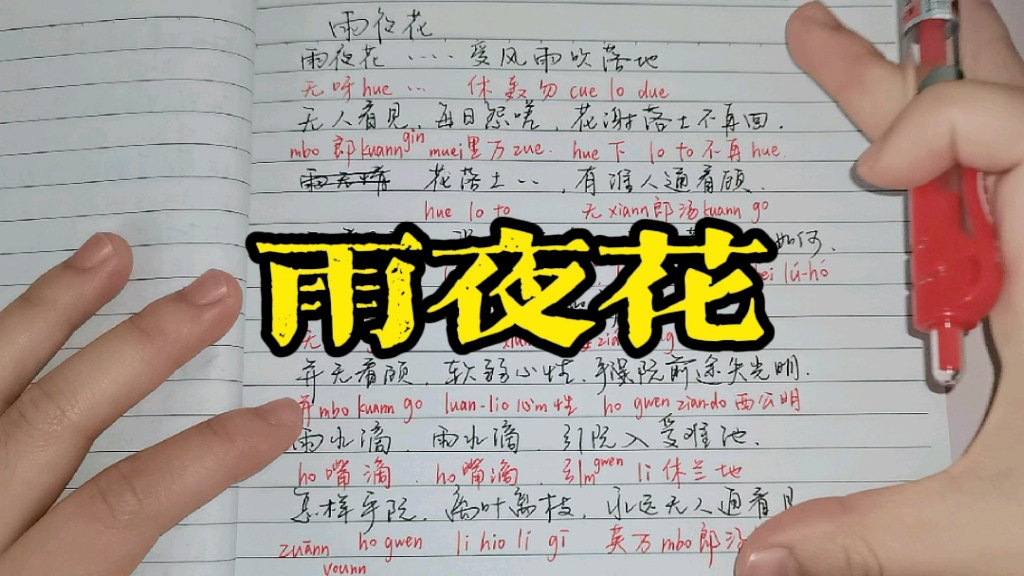 雨夜花
雨夜花····受风雨吹落地
无呀hue … 休轰勿cue lo due
无人看见，每日怨嗟，花谢落土不再回．
mbo郎kuann gin muei里万zue. hue下 lo to不再hue.
花落土··，有谁人通看顾．
hue lo to 无xiann郎汤kuann go
如何．
雨夜花
lú-ho
弃无看顾，软弱心性，乎阮前途失光明．
弃mbo kuann go luan-lio心m性 ho gwen zian-do西公明
雨水滴，雨水滴，引阮入受难池．
ho嘴滴，ho嘴滴，引m gwen li休兰地
怎样乎阮，离叶离枝，永远无人通看见
zuānn younn ho gwen li hio li gī 英万mbo郎汤